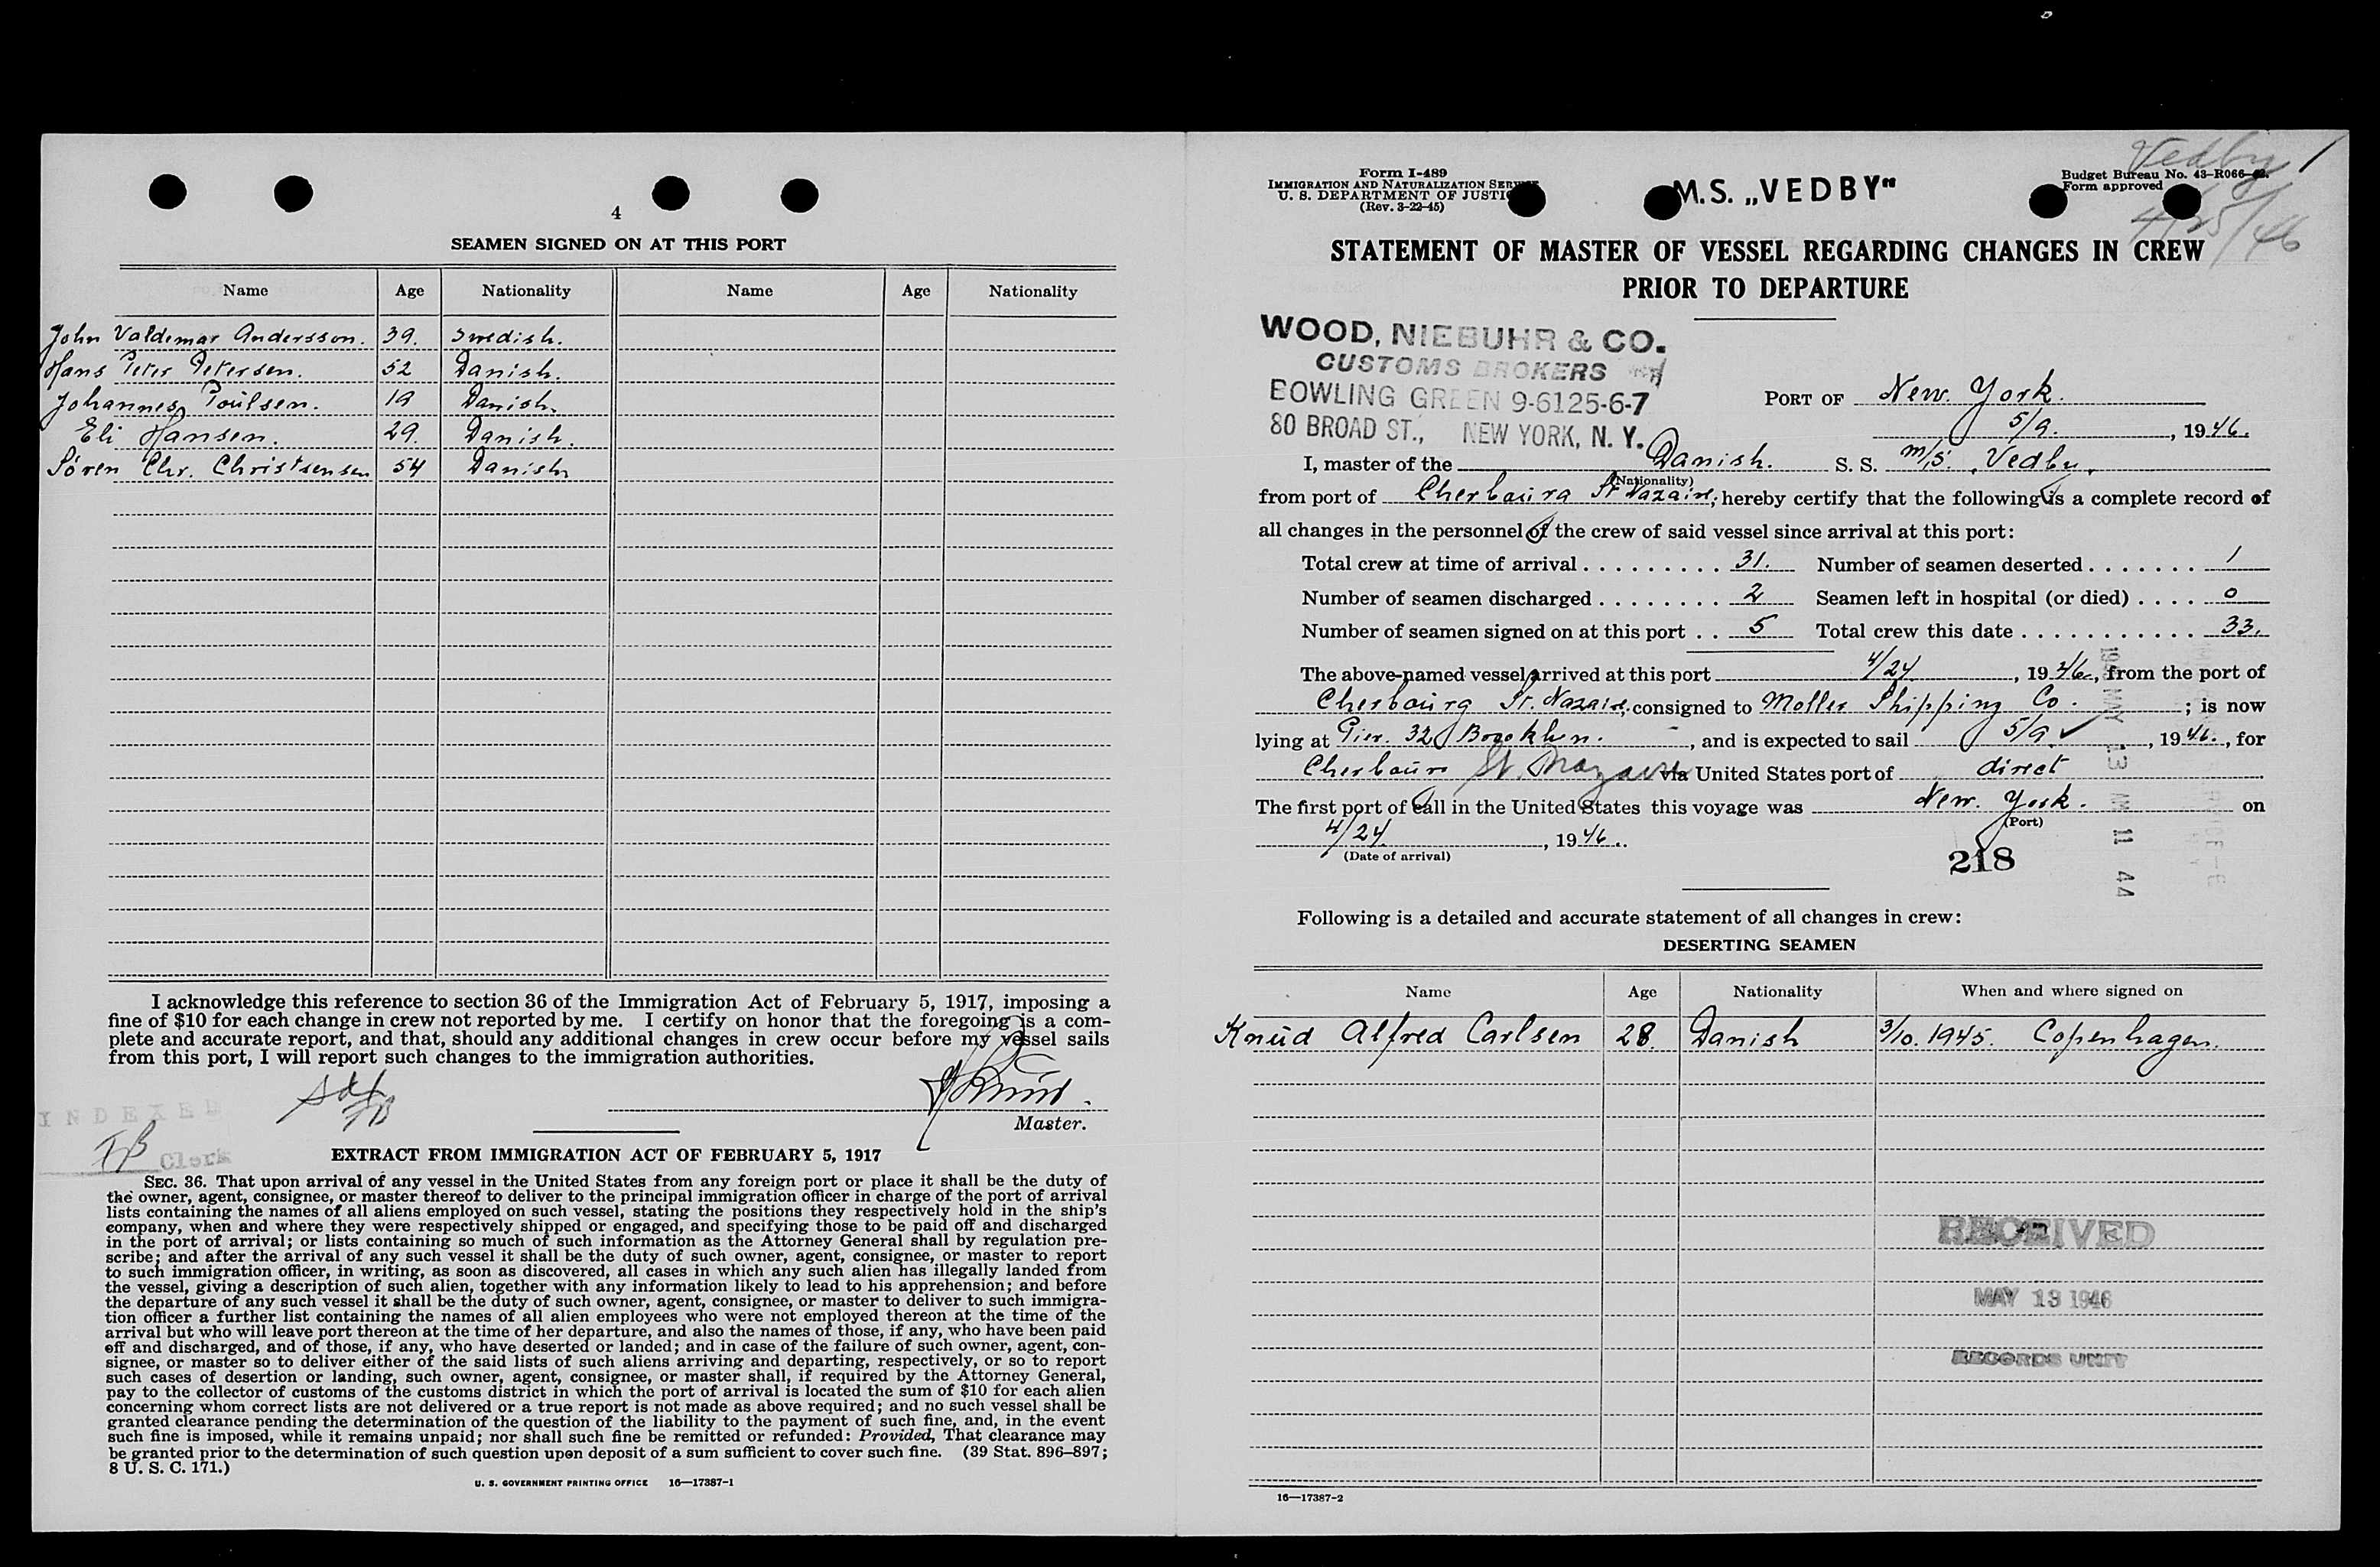 4
SEAMEN SIGNED ON AT THIS PORT
Name Age Nationality Name Age Nationality
John Valdemar Andersson. 39. Swedish.
Hans Peter Petersen. 52 Danish.
Johannes Poulsen. 19 Danish.
Eli Hansen. 29. Danish.
Sören Chr. Christsensen 54 Danish
I acknowledge this reference to section 36 of the Immigration Act of February 5, 1917, imposing a
fine of $10 for each change in crew not reported by me. I certify on honor that the foregoing is a com-
plete and accurate report, and that, should any additional changes in crew occur before my vessel sails
from this port, I will report such changes to the immigration authorities.
Master.
INDEXED
Clerk
EXTRACT FROM IMMIGRATION ACT OF FEBRUARY 5, 1917
SEC. 36. That upon arrival of any vessel in the United States from any foreign port or place it shall be the duty of
the owner, agent, consignee, or master thereof to deliver to the principal immigration officer in charge of the port of arrival
lists containing the names of all aliens employed on such vessel, stating the positions they respectively hold in the ship's
company, when and where they were respectively shipped or engaged, and specifying those to be paid off and discharged
in the port of arrival; or lists containing so much of such information as the Attorney General shall by regulation pre-
scribe; and after the arrival of any such vessel it shall be the duty of such owner, agent, consignee, or master to report
to such immigration officer, in writing, as soon as discovered, all cases in which any such alien has illegally landed from
the vessel, giving a description of such alien, together with any information likely to lead to his apprehension; and before
the departure of any such vessel it shall be the duty of such owner, agent, consignee, or master to deliver to such immigra-
tion officer a further list containing the names of all alien employees who were not employed thereon at the time of the
arrival but who will leave port thereon at the time of her departure, and also the names of those, if any, who have been paid
off and discharged, and of those, if any, who have deserted or landed; and in case of the failure of such owner, agent, con-
signee, or master so to deliver either of the said lists of such aliens arriving and departing, respectively, or so to report
such cases of desertion or landing, such owner, agent, consignee, or master shall, if required by the Attorney General,
pay to the collector of customs of the customs district in which the port of arrival is located the sum of $10 for each alien
concerning whom correct lists are not delivered or a true report is not made as above required; and no such vessel shall be
granted clearance pending the determination of the question of the liability to the payment of such fine, and, in the event
such fine is imposed, while it remains unpaid; nor shall such fine be remitted or refunded: Provided, That clearance may
be granted prior to the determination of such question upon deposit of a sum sufficient to cover such fine. (39 Stat. 896–897;
8 U. S. C. 171.)
U. S. GOVERNMENT PRINTING OFFICE 16—17387-1
Vedby 1
4/25/46
Form I-489
IMMIGRATION AND NATURALIZATION
U. S. DEPARTMENT OF
(Rev. 3-22-45)
M.S. „VEDBY"
Budget Bureau No. 43-R066
Form approved
STATEMENT OF MASTER OF VESSEL REGARDING CHANGES IN CREW
PRIOR TO DEPARTURE
WOOD, NIEBUHR & CO.
CUSTOMS BROKERS
BOWLING GREEN 9-6125-6-7
80 BROAD ST., NEW YORK, N. Y.
PORT OF New York.
5/9. , 1946.
I, master of the Danish. S. S. m/s. Vedby.
(Nationality)
from port of Cherbourg St Nazaire; hereby certify that the following is a complete record of
all changes in the personnel of the crew of said vessel since arrival at this port:
Total crew at time of arrival 31. Number of seamen deserted 1
Number of seamen discharged 2 Seamen left in hospital (or died) 0
Number of seamen signed on at this port 5 Total crew this date 33.
The above-named vessel arrived at this port 4/24 , 1946, from the port of
Cherbourg St. Nazaire; consigned to Moller Shipping Co. ; is now
lying at Pier. 32 Brooklyn. , and is expected to sail 5/9 , 1946., for
Cherbourg St. Nazaire via United States port of direct
The first port of call in the United States this voyage was New. York. on
(Port)
4/24. , 1946.
(Date of arrival)
218
MAY 13 11 44
Following is a detailed and accurate statement of all changes in crew:
DESERTING SEAMEN
Name Age Nationality When and where signed on
Knud Alfred Carlsen 28. Danish 3/10. 1945. Copenhagen.
RECEIVED
MAY 13 1946
RECORDS UNIT
16—17387-2